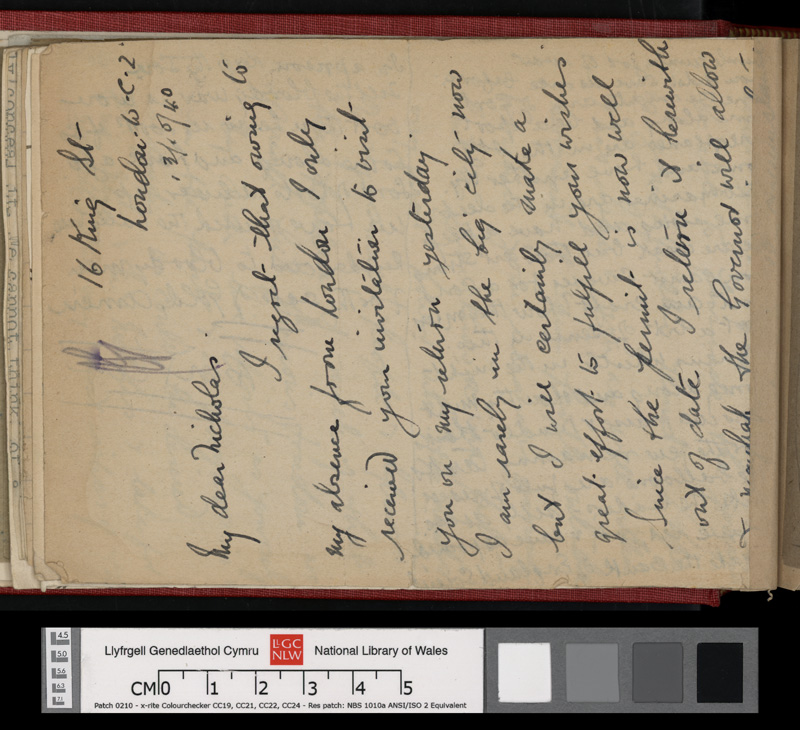 16 King St
London W.C.2.
13/10/40
My dear Nicholas
I regret that owing to
my absence from London I only
received your invitation to visit
you on my return yesterday.
I am rarely in the big city now
but I will certainly make a
great effort to fulfill your wishes
Since the permit is now well
out of date I return it herewith
the Governor will allow
Llyfrgell Genedlaethol Cymru
LLGC
NLW
National Library of Wales
CM 0 1 2 3 4 5
Patch 0210 - x-rite Colourchecker CC19, CC21, CC22, CC24 - Res patch: NBS 1010a ANSI/ISO 2 Equivalent
4.5
5.0
5.6
6.3
7.1